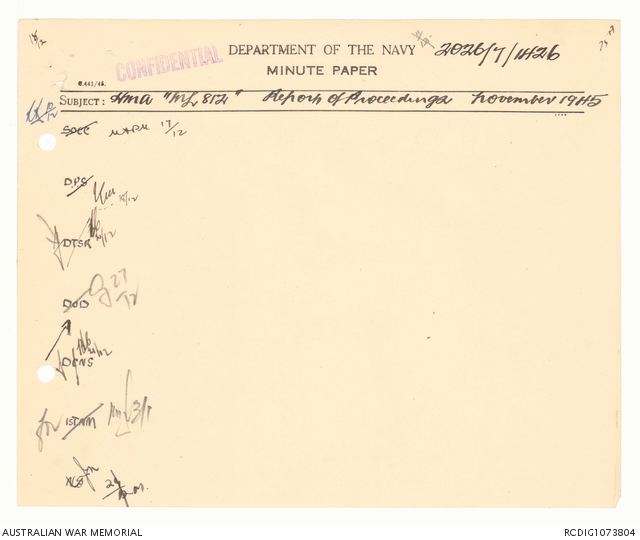 18/12
CONFIDENTIAL
DEPARTMENT OF THE NAVY 2026/7/1426
MINUTE PAPER
C.441/45.
SUBJECT: HMA "ML 812" Report of Proceedings November 1945
SOCC 17/12
DPS 18/12
DTSR
DOD 27/12
DCNS
for 1st NM 3/1
NS
AUSTRALIAN WAR MEMORIAL
RCDIG1073804